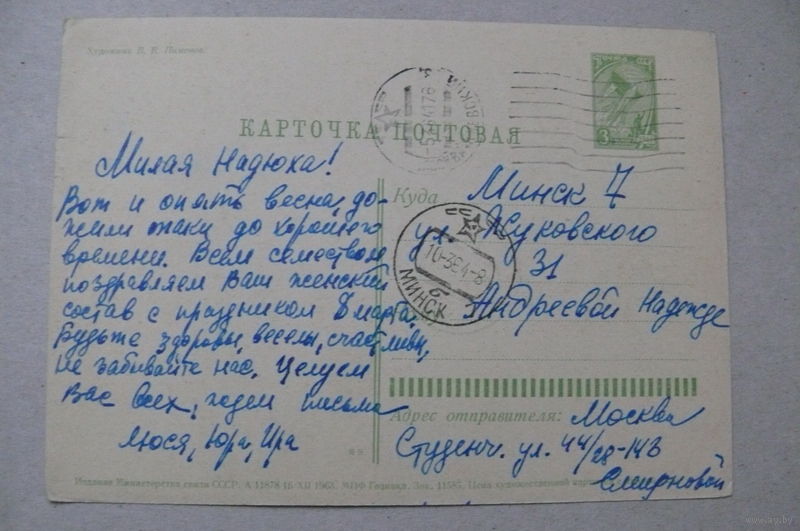 Художник В. В. Пименов.
ПОЧТА СССР
3
КАРТОЧКА ПОЧТОВАЯ
Милая Надюха!
Вот и опять весна, до-
жили таки до хорошего
времени. Всем семейством
поздравляем Ваш женский
состав с праздником 8 марта.
Будьте здоровы, веселы, счастливы,
не забывайте нас. Целуем
Вас всех, ждем письма
Люся, Юра, Ира
Куда Минск 7
ул. Жуковского
31
Андреевой Надежде
10-364-8
МИНСК
Адрес отправителя: Москва
Студенч. ул. 44/28-143
Смирновой
Издание Министерства связи СССР. А 11878 16/XII 1963. МПФ Гознака. Зак. 11585. Цена художественной
www.ay.by